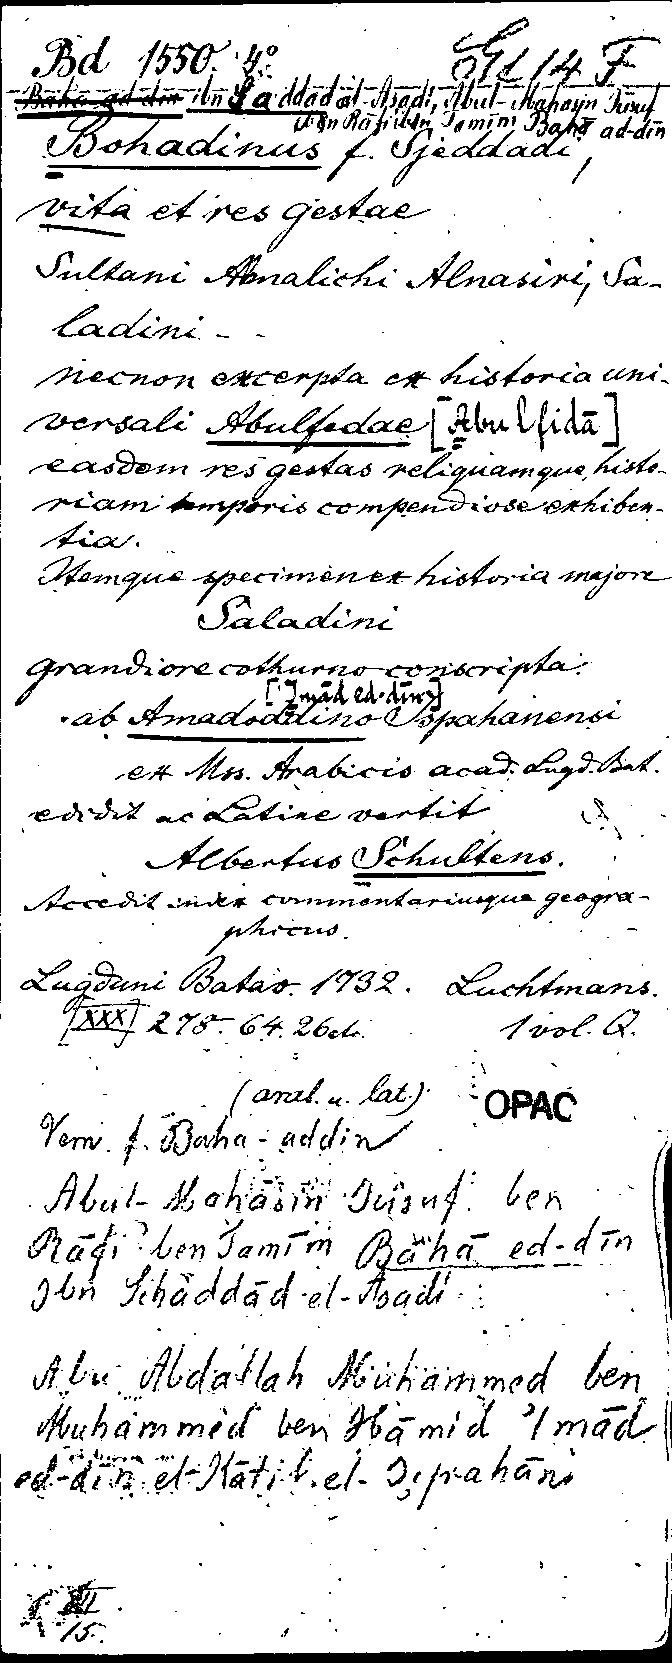 Bd 1550. 4°
Gl 14 F
Baha ad-din ibn Šaddād al-Asadi, Abul-Mahasin Jusuf
ibn Rafi ibn Tamīm Bahā ad-dīn
Bohadinus f. Sjeddadi,
vita et res gestae
Sultani Almalichi Alnasiri, Sa-
ladini - -
necnon excerpta ex historia uni-
versali Abulfedae [Abulfidā]
easdem res gestas reliquamque histo-
riam temporis compendiose exhiben-
tia.
Itemque specimen ex historia majore
Saladini
grandiore cothurno conscripta.
['Imād ed-dīn]
ab Amadoddino Ispahanensi
ex Mss. Arabicis acad. Lugd. Bat.
edidit ac Latine vertit
Albertus Schultens.
Accedit index commentariusque geogra-
phicus.
Lugduni Batav. 1732. Luchtmans.
[XXX] 278. 64. 26 1 vol. Q.
(arab. u. lat.)
OPAC
Verw. f. Baha-addin
Abul-Mahāsin Jūsuf ben
Rāfi' ben Tamīm Bahā ed-dīn
Ibn Schäddād el-Asadi
Abu Abdallah Muhammed ben
Muhammed ben Hāmid 'Imād
ed-dīn el-Kātib el-Ispahāni
XII
15.